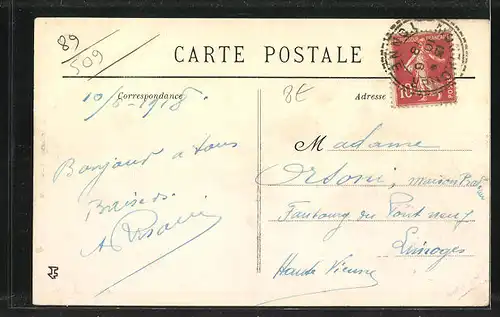 89
509
CARTE POSTALE
Correspondance
Adresse
10/8-1918
8E
10
Bonjour a tous
Baisers
Madame
Orsoni, maison
Faubourg du Pont neuf
Limoges
Haute Vienne